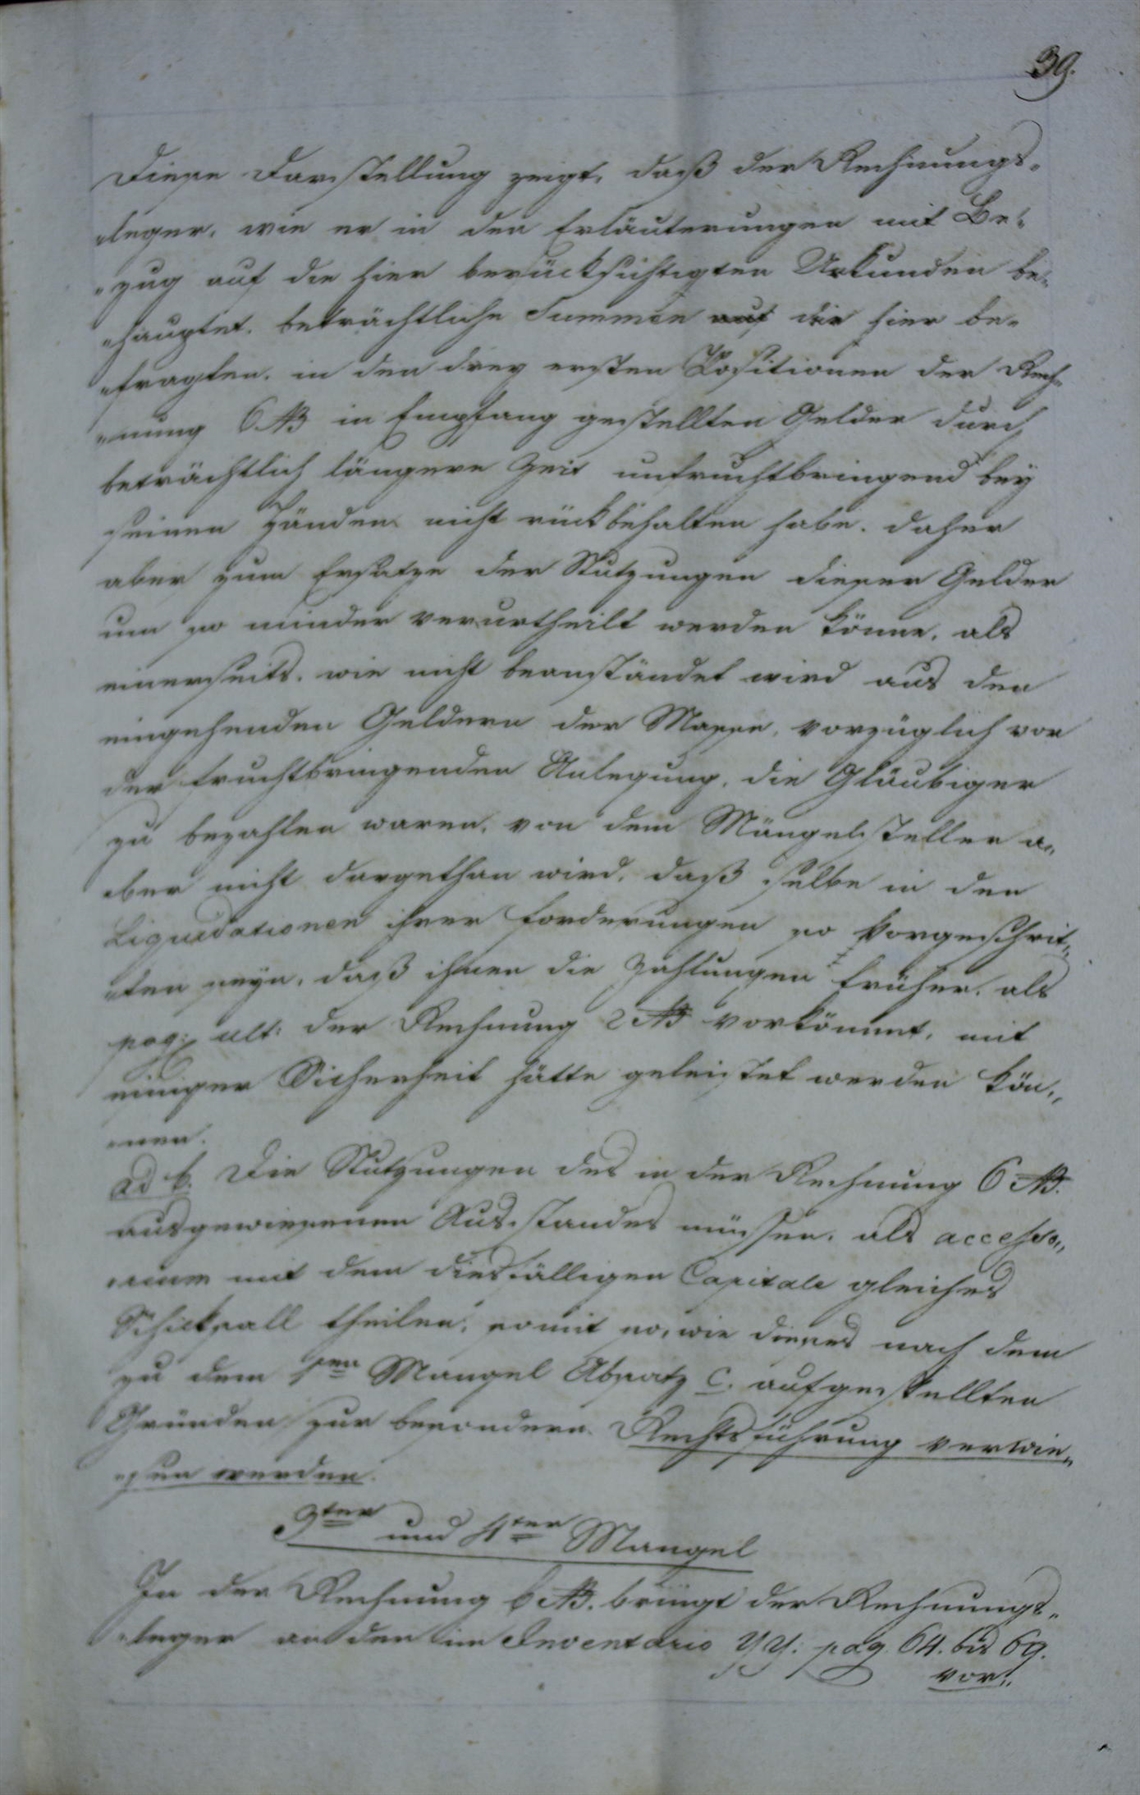 39.
Diese Darstellung zeigt, daß der Rechnungs-
„leger, wie er in den Erläuterungen mit Be-
„zug auf die hier berücksichtigten Urkunden be-
„hauptet, beträchtliche Summen auf die hier be-
„fragten, in den drey ersten Positionen der Rech-
„nung 6 AB in Empfang gestellten Gelder durch
beträchtlich längere Zeit unfruchtbringend bey
seinen Händen nicht rückbehalten habe, daher
aber zum Ersatze der Nutzungen dieser Gelder
um so minder verurtheilt werden könne, als
einerseits, wie nicht beanständet wird aus den
eingehenden Geldern der Masse, vorzüglich vor
der fruchtbringenden Anlegung, die Gläubiger
zu bezahlen waren, von dem Mängelsteller a-
„ber nicht dargethan wird, daß selbe in den
Liquidationen ihrer Forderungen so vorgeschrit-
„ten seyn, daß ihnen die Zahlungen früher, als
pag: ult: der Rechnung 2 AB vorkömmt, mit
einiger Sicherheit hätte geleistet werden kön-
„nen.
ad b. Die Nutzungen des in der Rechnung 6 AB.
ausgewiesenen Ausstandes müssen, als accesso-
„rium mit dem diesfälligen Capitale gleiches
Schicksall theilen, somit so, wie dieses nach dem
zu dem 1ten Mangel Absatz c. aufgestellten
Gründen zur besondern Rechtsführung verwie-
„sen werden.
3ter und 4ter Mangel
In der Rechnung 6 AB. bringt der Rechnungs-
„leger an den im Inventario YY: pag. 64. bis 69.
vor-